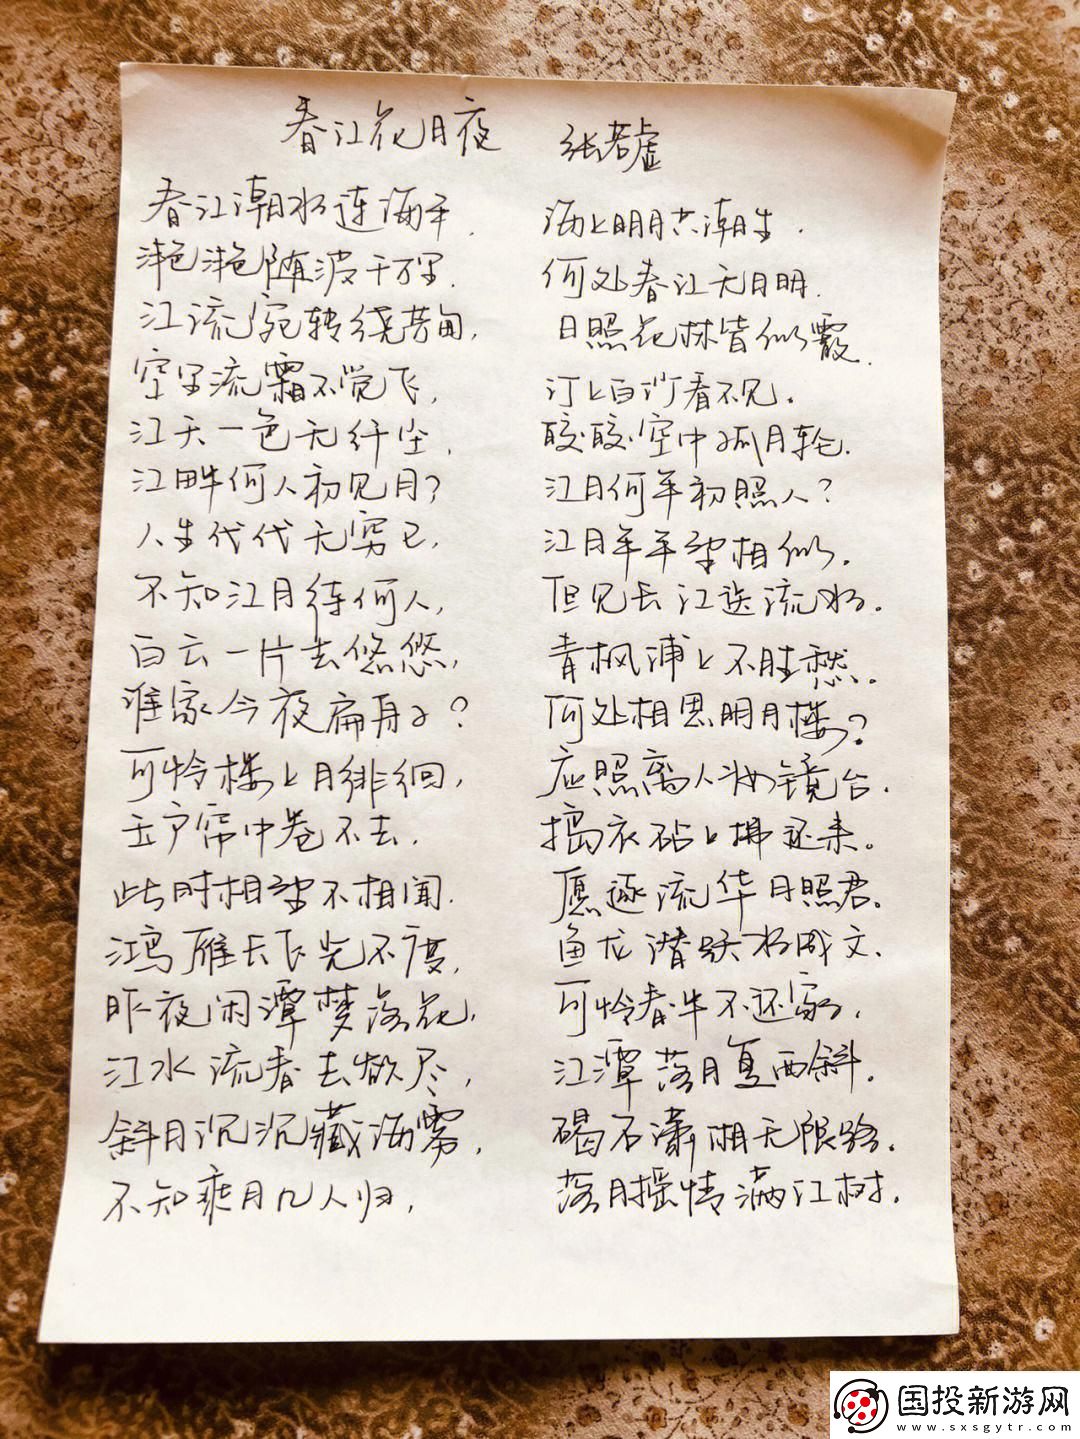 春江花月夜 张若虚
春江潮水连海平, 海上明月共潮生.
滟滟随波千万里. 何处春江无月明.
江流宛转绕芳甸, 月照花林皆似霰.
空里流霜不觉飞, 汀上白沙看不见.
江天一色无纤尘, 皎皎空中孤月轮.
江畔何人初见月? 江月何年初照人?
人生代代无穷已, 江月年年望相似.
不知江月待何人, 但见长江送流水.
白云一片去悠悠, 青枫浦上不胜愁.
谁家今夜扁舟子? 何处相思明月楼?
可怜楼上月徘徊, 应照离人妆镜台.
玉户帘中卷不去. 捣衣砧上拂还来.
此时相望不相闻. 愿逐流华月照君.
鸿雁长飞光不度, 鱼龙潜跃水成文.
昨夜闲潭梦落花, 可怜春半不还家.
江水流春去欲尽, 江潭落月复西斜.
斜月沉沉藏海雾, 碣石潇湘无限路.
不知乘月几人归, 落月摇情满江树.
国投新游网
www.sxsgytr.com